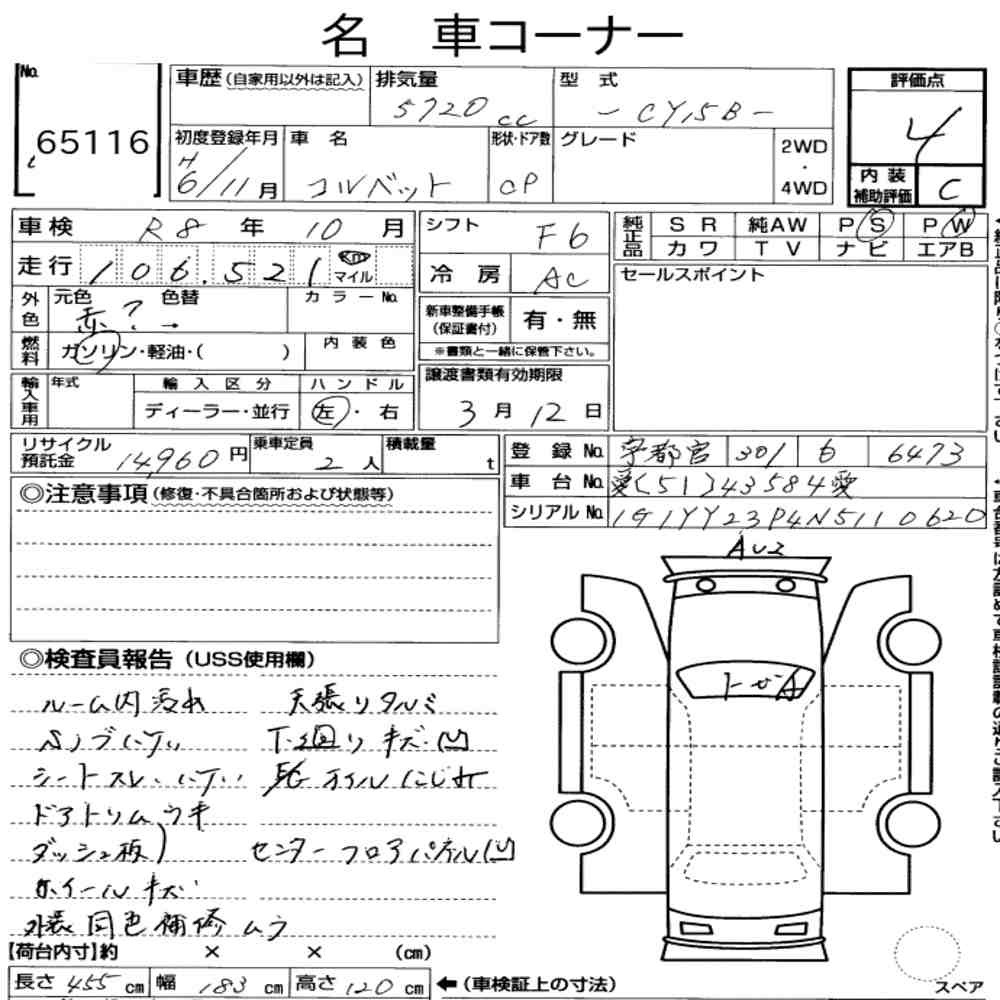 名 車コーナー
No. 65116
車歴(自家用以外は記入) 排気量 5720cc 型式 -CY15B-
評価点 4
初度登録年月 H6/11月 車名 コルベット 形状・ドア数 CP グレード 2WD・4WD
内装補助評価 C
車検 R8年10月 シフト F6
純正品 SR 純AW PS PW
カワ TV ナビ エアB
走行 106,521 Km マイル 冷房 AC
セールスポイント
外色 元色 赤? 色替 → カラーNo.
新車整備手帳(保証書付) 有・無
※書類と一緒に保管下さい。
燃料 ガソリン・軽油・( ) 内装色
輸入車用 年式 輸入区分 ハンドル
ディーラー・並行 左・右
譲渡書類有効期限
3月12日
リサイクル預託金 14,960円 乗車定員 2人 積載量 t
登録No. 宇都宮 301 6473
車台No. 愛[51]43584愛
シリアルNo. 1G1YY23P4N5110620
◎注意事項(修復・不具合箇所および状態等)
◎検査員報告(USS使用欄)
ルーム内汚れ 天張りタルミ
ハンドルスレ
シートスレ オイルにじみ
ドアトリムウキ
ダッシュ板 センターフロアパネル凹
ホイールキズ
外装同色補修ムラ
【荷台内寸】約 × × (cm)
長さ 455cm 幅 183cm 高さ 120cm ←(車検証上の寸法)
スペア